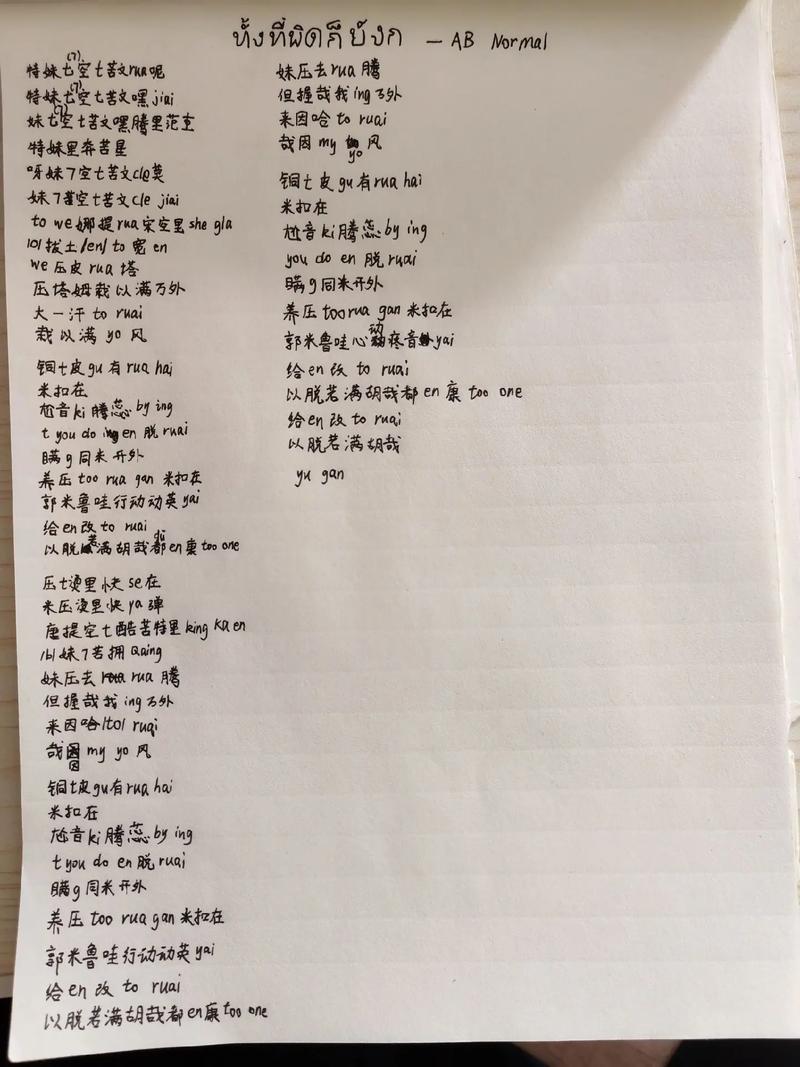 ทั้งที่ผิดก็ยัง — AB Normal
特妹七(7)空七苦文rua呢
特妹七(7)空七苦文嘿jiai
妹七(7)空七苦文嘿腾里范主
特妹里奔苦星
呀妹7空七苦文cle莫
妹7空七苦文cle jiai
to we娜提rua宋空里she gla
lol拔土/en/to宽en
we压皮rua塔
压塔姆栽以满万外
大一汗to ruai
栽以满yo风
铜七皮gu有rua hai
米扣在
尬音ki腾蕊by ing
t you do en脱ruai
瞒g同米开外
养压too rua gan米扣在
郭米鲁哇行动动英yai
给en改to ruai
以脱若满胡哉都en康too one
压七烫里快se在
米压烫里快ya弹
唐提空七酷苦特里king ka en
/b/妹7苦拥Qaing
妹压去rua腾
但握哉我ing万外
来因哈/to/ ruai
哉因my yo风
铜七皮gu有rua hai
米扣在
尬音ki腾蕊by ing
t you do en脱ruai
瞒g同米开外
养压too rua gan米扣在
郭米鲁哇行动动英yai
给en改to ruai
以脱若满胡哉都en康too one
妹压去rua腾
但握哉我ing万外
来因哈to ruai
哉因my yo风
铜七皮gu有rua hai
米扣在
尬音ki腾蕊by ing
you do en脱ruai
瞒g同米开外
养压too rua gan米扣在
郭米鲁哇心动疼音yai
给en改to ruai
以脱若满胡哉都en康too one
给en改to ruai
以脱若满胡哉
yu gan